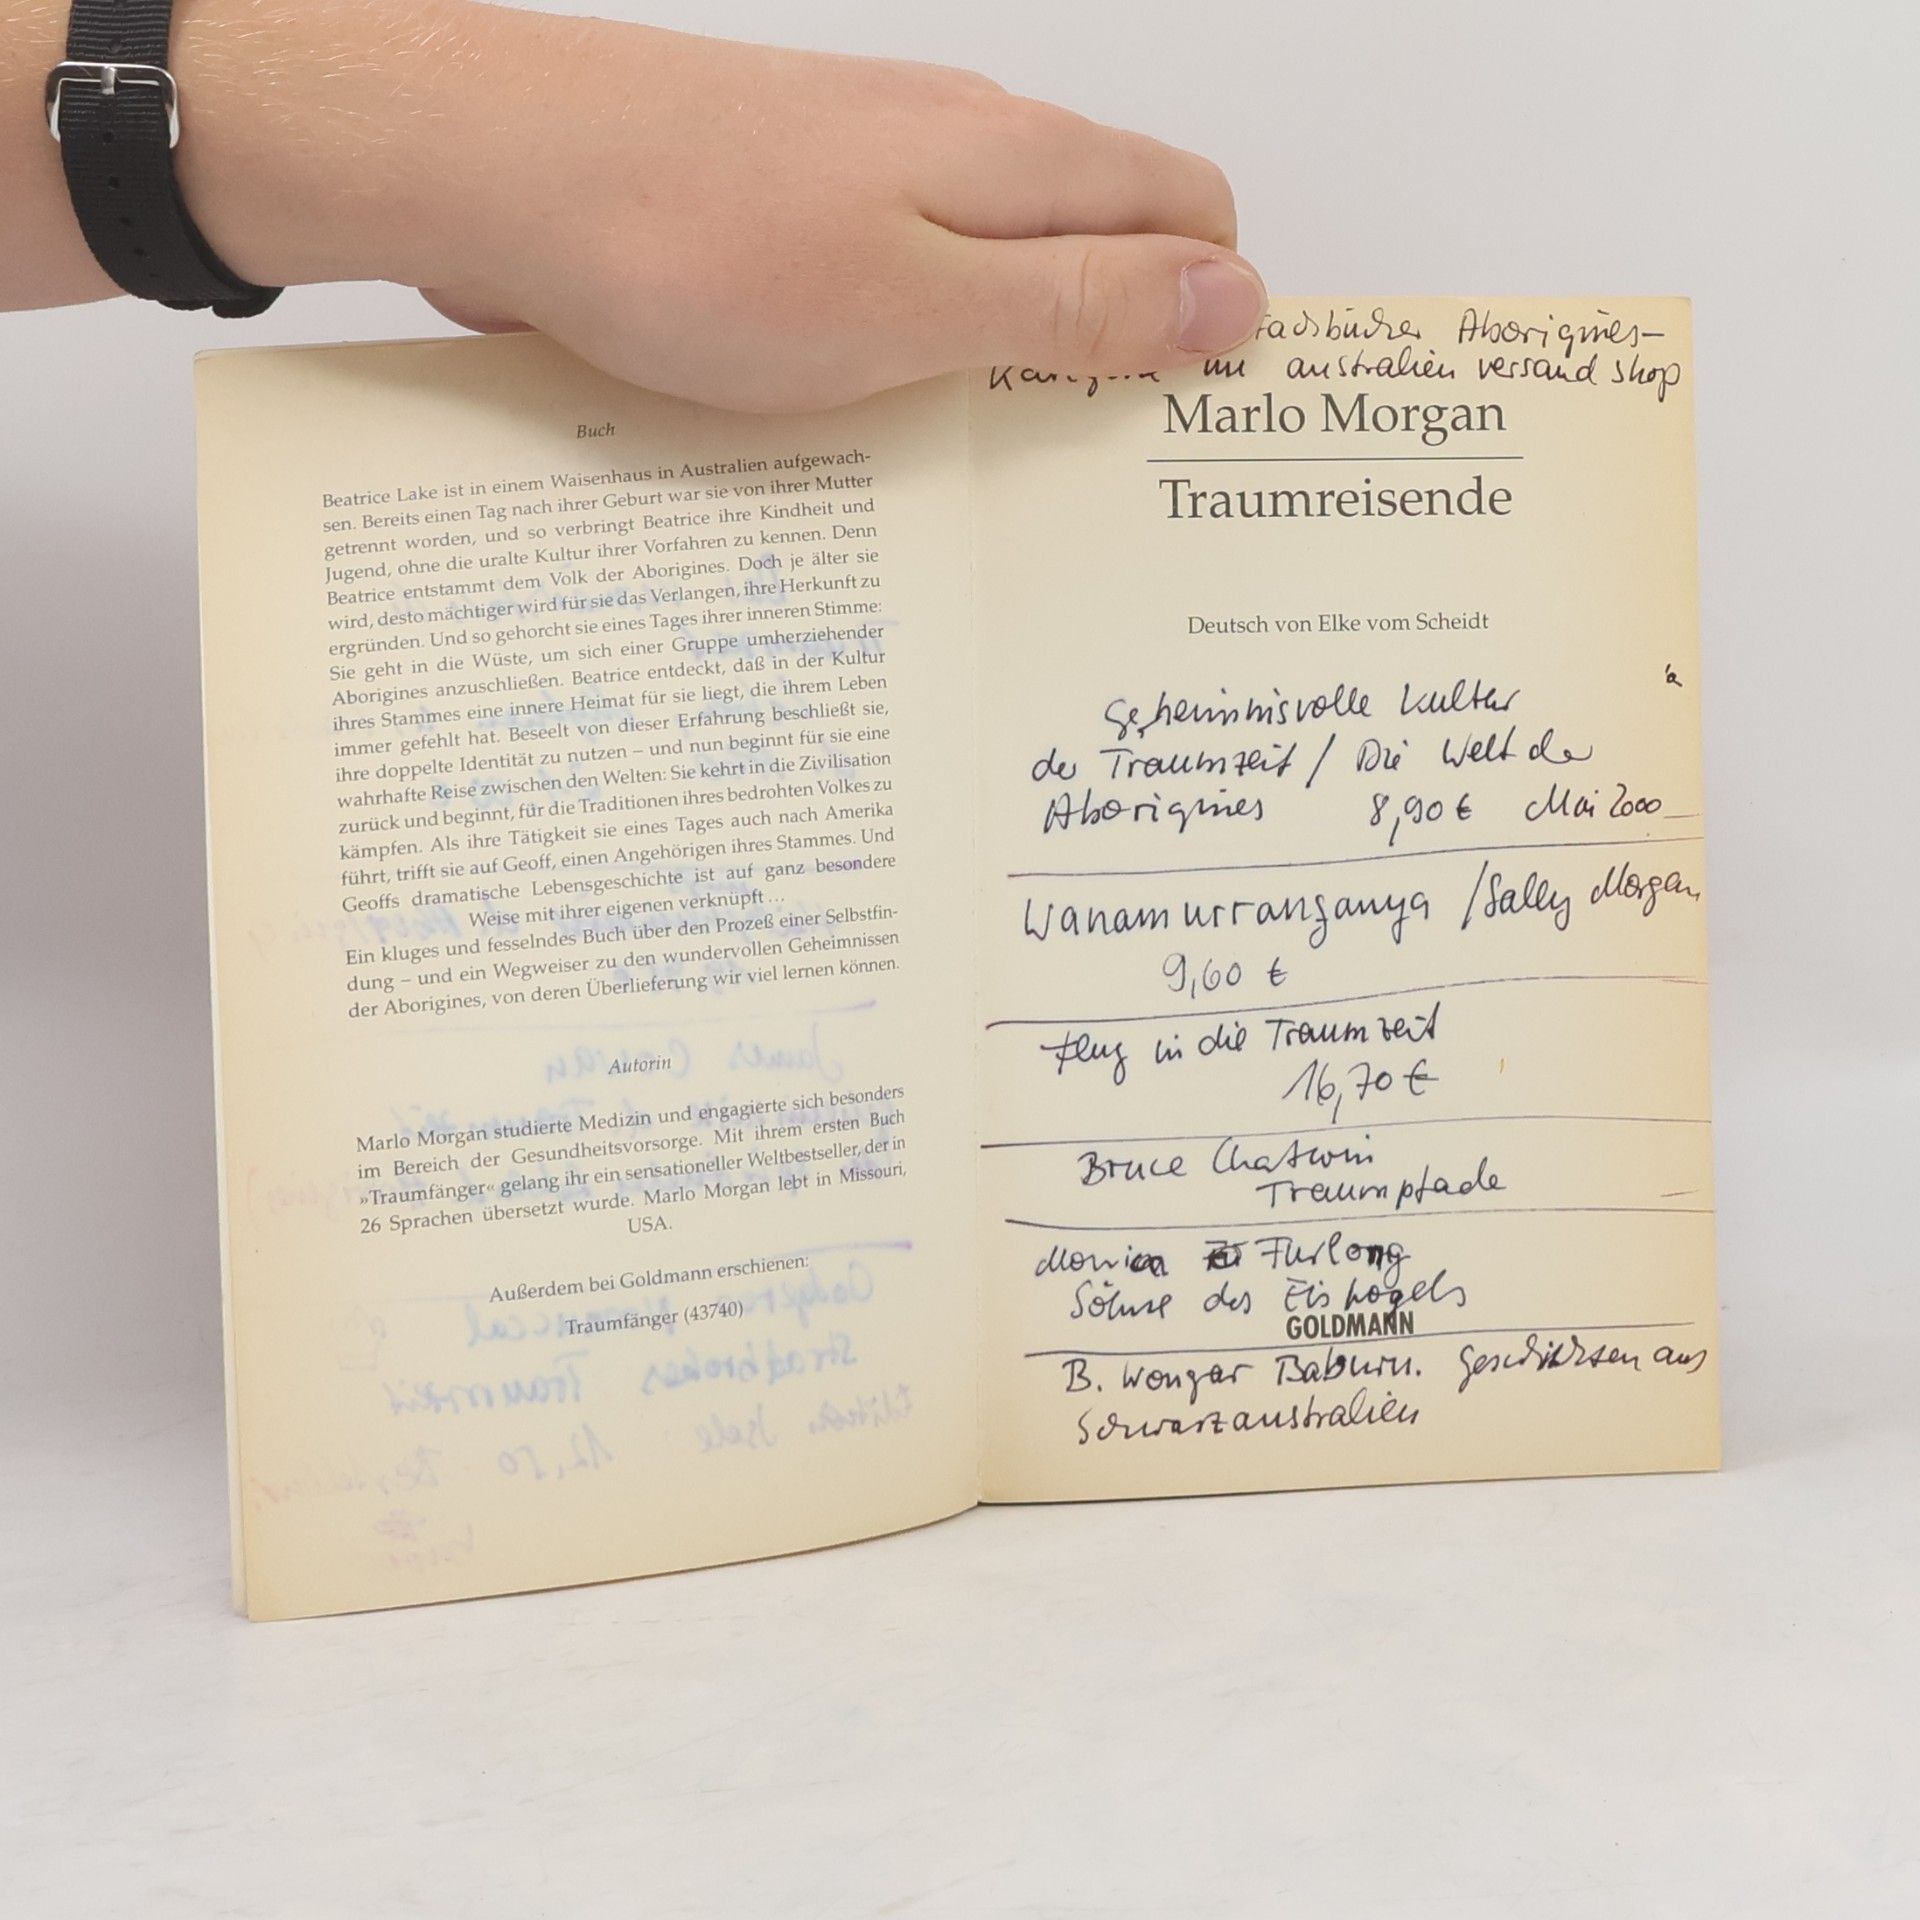 Buch
Beatrice Lake ist in einem Waisenhaus in Australien aufgewach-
sen. Bereits einen Tag nach ihrer Geburt war sie von ihrer Mutter
getrennt worden, und so verbringt Beatrice ihre Kindheit und
Jugend, ohne die uralte Kultur ihrer Vorfahren zu kennen. Denn
Beatrice entstammt dem Volk der Aborigines. Doch je älter sie
wird, desto mächtiger wird für sie das Verlangen, ihre Herkunft zu
ergründen. Und so gehorcht sie eines Tages ihrer inneren Stimme:
Sie geht in die Wüste, um sich einer Gruppe umherziehender
Aborigines anzuschließen. Beatrice entdeckt, daß in der Kultur
ihres Stammes eine innere Heimat für sie liegt, die ihrem Leben
immer gefehlt hat. Beseelt von dieser Erfahrung beschließt sie,
ihre doppelte Identität zu nutzen – und nun beginnt für sie eine
wahrhafte Reise zwischen den Welten: Sie kehrt in die Zivilisation
zurück und beginnt, für die Traditionen ihres bedrohten Volkes zu
kämpfen. Als ihre Tätigkeit sie eines Tages auch nach Amerika
führt, trifft sie auf Geoff, einen Angehörigen ihres Stammes. Und
Geoffs dramatische Lebensgeschichte ist auf ganz besondere
Weise mit ihrer eigenen verknüpft ...
Ein kluges und fesselndes Buch über den Prozeß einer Selbstfin-
dung – und ein Wegweiser zu den wundervollen Geheimnissen
der Aborigines, von deren Überlieferung wir viel lernen können.
Autorin
Marlo Morgan studierte Medizin und engagierte sich besonders
im Bereich der Gesundheitsvorsorge. Mit ihrem ersten Buch
»Traumfänger« gelang ihr ein sensationeller Weltbestseller, der in
26 Sprachen übersetzt wurde. Marlo Morgan lebt in Missouri,
USA.
Außerdem bei Goldmann erschienen:
Traumfänger (43740)
Aborigines–
im australien versand shop
Marlo Morgan
Traumreisende
Deutsch von Elke vom Scheidt
Geheimnisvolle Kultur
der Traumzeit / Die Welt der
Aborigines 8,90 € Mai 2000
Wanamurranganya / Sally Morgan
9,60 €
Flug in die Traumzeit
16,70 €
Bruce Chatwin
Traumpfade
Monica Furlong
Söhne des Eisvogels
GOLDMANN
B. Wongar Baburu. Geschichten aus
Schwarzaustralien